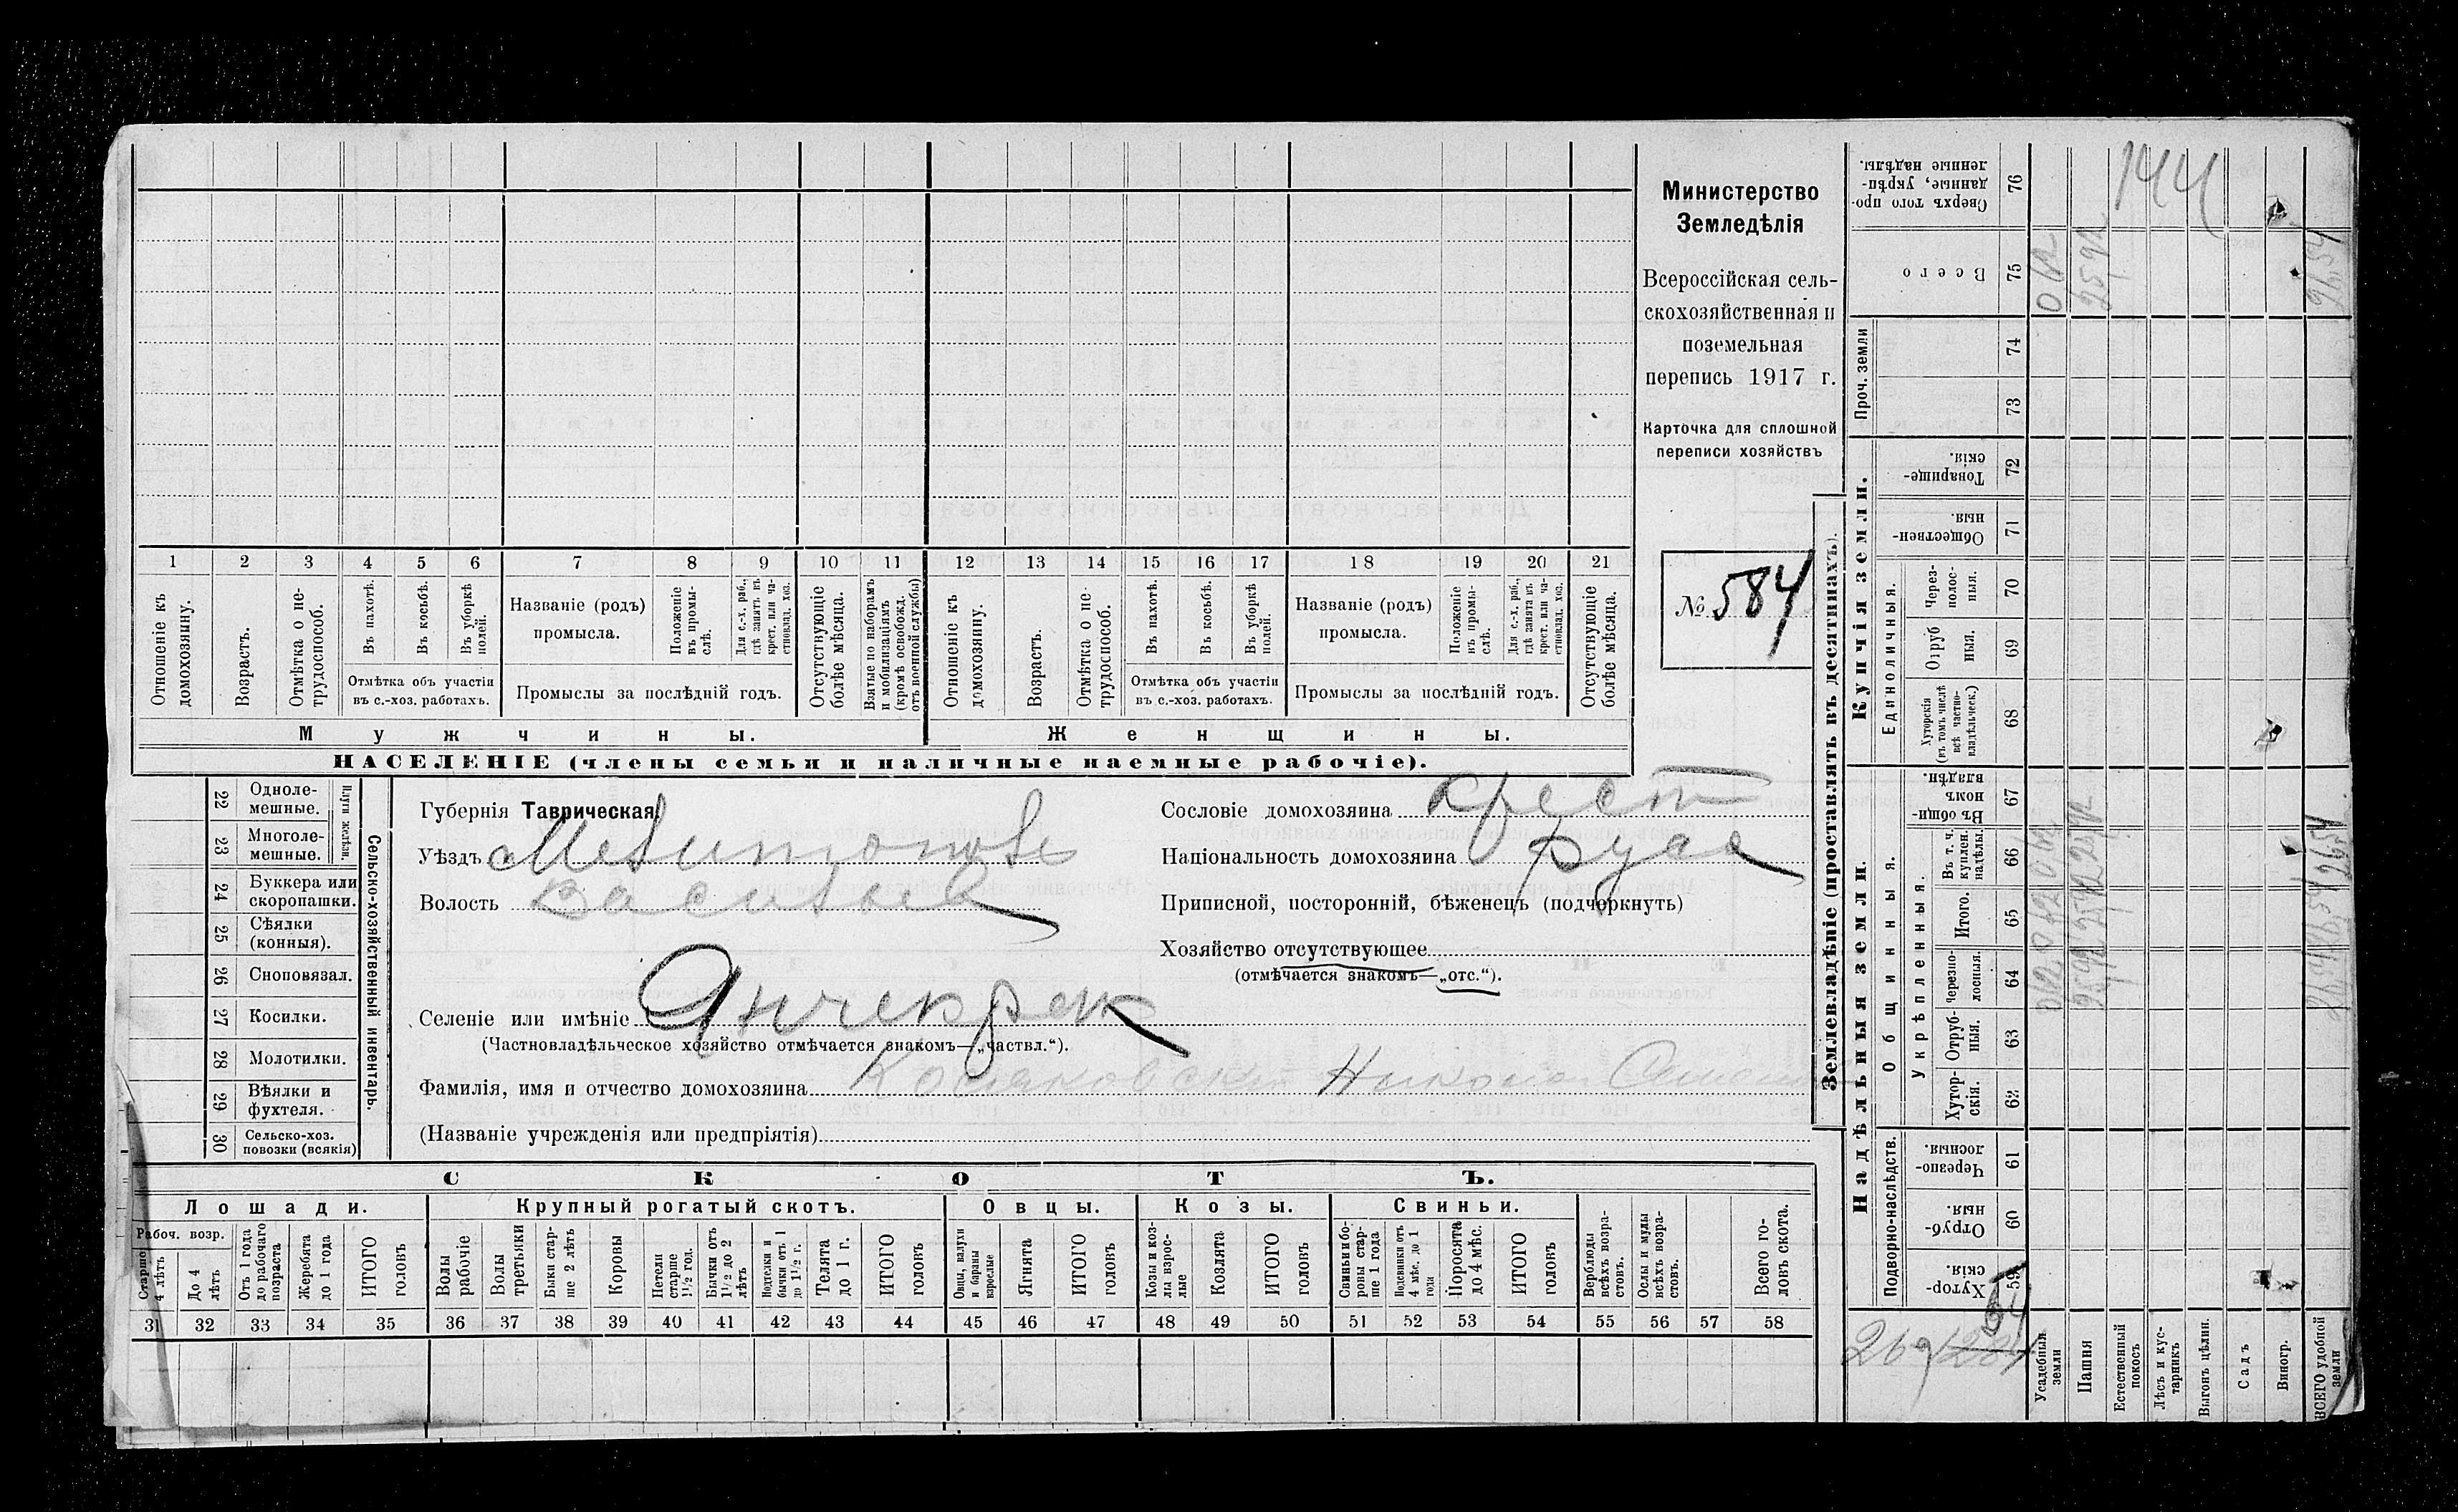 Министерство
Земледѣлія
Всероссійская сель-
скохозяйственная и
поземельная
перепись 1917 г.
Карточка для сплошной
переписи хозяйствъ
№ 584
1 2 3 4 5 6 7 8 9 10 11 12 13 14 15 16 17 18 19 20 21
Отношеніе къ домохозяину.
Возрастъ.
Отмѣтка о не-трудоспособ.
Въ пахотѣ.
Въ косьбѣ.
Въ уборкѣ полей.
Отмѣтка объ участіи
въ с.-хоз. работахъ.
Названіе (родъ)
промысла.
Положеніе въ промы-слѣ.
Для с.-х. раб., гдѣ занятъ въ крест. или ча-стновлад. хоз.
Промыслы за послѣдній годъ.
Отсутствующіе болѣе мѣсяца.
Взятые по наборамъ и мобилизаціямъ (кромѣ освобожд. отъ военной службы)
Отношеніе къ домохозяину.
Возрастъ.
Отмѣтка о не-трудоспособ.
Въ пахотѣ.
Въ косьбѣ.
Въ уборкѣ полей.
Отмѣтка объ участіи
въ с.-хоз. работахъ.
Названіе (родъ)
промысла.
Положеніе въ промы-слѣ.
Для с.-х. раб., гдѣ занята въ крест. или ча-стновлад. хоз.
Промыслы за послѣдній годъ.
Отсутствующіе болѣе мѣсяца.
Мужчины.
Женщины.
НАСЕЛЕНІЕ (члены семьи и наличные наемные рабочіе).
22 Одноле-мешные.
23 Многоле-мешные.
Плуги желѣзн.
24 Буккера или скоропашки.
25 Сѣялки (конныя).
26 Сноповязал.
27 Косилки.
28 Молотилки.
29 Вѣялки и фухтеля.
30 Сельско-хоз. повозки (всякія)
Сельско-хозяйственный инвентарь.
Губернія Таврическая
Уѣздъ
Волость Васильев
Селеніе или имѣніе Янчекрак
(Частновладѣльческое хозяйство отмѣчается знакомъ—„частвл.“).
Фамилія, имя и отчество домохозяина
(Названіе учрежденія или предпріятія)
Сословіе домохозяина крест
Національность домохозяина русс
Приписной, посторонній, бѣженецъ (подчеркнуть)
Хозяйство отсутствующее
(отмѣчается знакомъ—„отс.“).
СКОТЪ.
Лошади.
Крупный рогатый скотъ.
Овцы.
Козы.
Свиньи.
Рабоч. возр.
Старше 4 лѣтъ
До 4 лѣтъ
Отъ 1 года до рабочаго возраста
Жеребята до 1 года
ИТОГО головъ
Волы рабочіе
Волы третьяки
Быки стар-ше 2 лѣтъ
Коровы
Нетели старше 1½ год.
Бычки отъ 1½ до 2 лѣтъ
Подтелки и бычки отъ 1 до 1½ г.
Телята до 1 г.
ИТОГО головъ
Овцы, валухи и бараны взрослые
Ягнята
ИТОГО головъ
Козы и коз-лы взрос-лые
Козлята
ИТОГО головъ
Свиньи и бо-ровы стар-ше 1 года
Подсвинки отъ 4 мѣс. до 1 года
Поросята до 4 мѣс.
ИТОГО головъ
Верблюды всѣхъ возра-стовъ.
Ослы и мулы всѣхъ возра-стовъ.
Всего го-ловъ скота.
31 32 33 34 35 36 37 38 39 40 41 42 43 44 45 46 47 48 49 50 51 52 53 54 55 56 57 58
Землевладѣніе (проставлять въ десятинахъ).
Купчія земли.
Надѣльныя земли.
Проч. земли
Единоличныя.
Общинныя.
Укрѣпленныя.
Подворно-наслѣдств.
Сверхъ того про-данные, укрѣп-ленные надѣлы. 76
Всего 75
74
73
Товарище-скія. 72
Обществен-ныя. 71
Через-полос-ныя. 70
Отруб ныя. 69
Хуторскія (въ томъ числѣ всѣ частно-владѣльческ.) 68
Въ общи-номъ владѣн. 67
Въ т. ч. куплен. надѣлы. 66
Итого. 65
Черезпо-лосныя. 64
Отруб-ныя. 63
Хутор-скія. 62
Черезпо-лосныя. 61
Отруб-ныя. 60
Хутор-скія. 59
Усадебныя земли
Пашня
Естественный покосъ
Лѣсъ и кус-тарникъ
Выгонъ цѣлин.
Садъ
Виногр.
ВСЕГО удобной земли
144